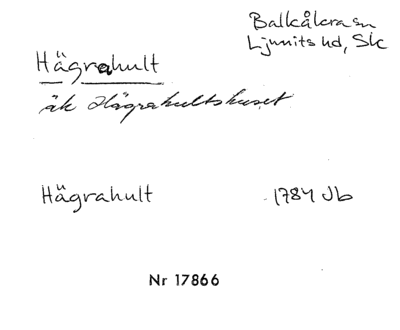 Balkåkra sn
Ljunits hd, Sk
Hägrahult
äk Hägrahultshuset
Hägrahult 1784 Jb
Nr 17866